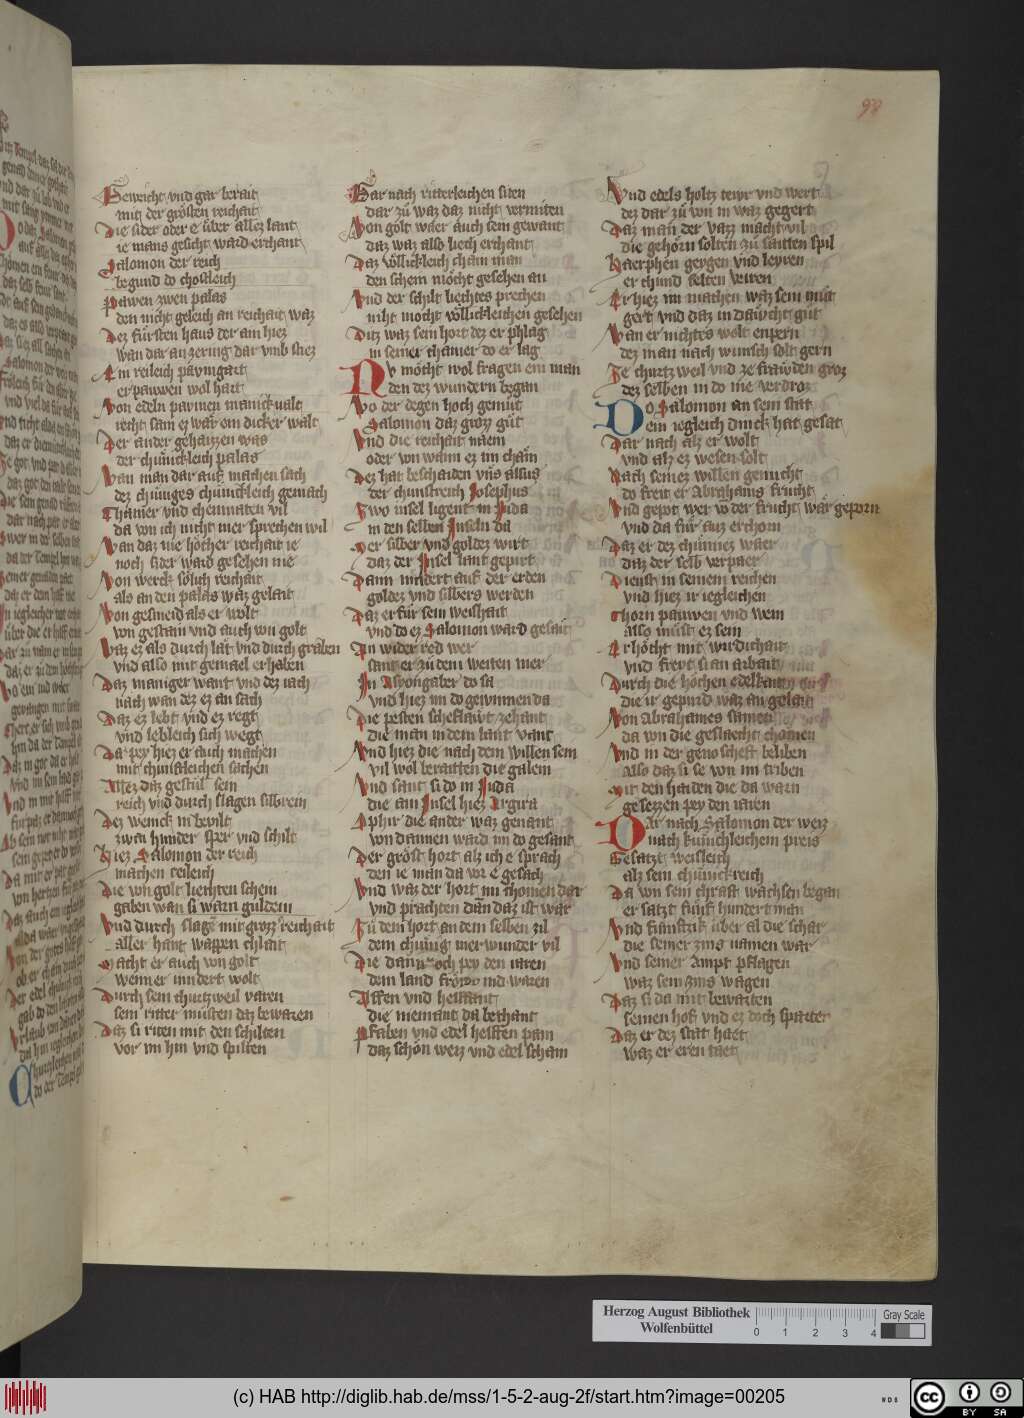 98
Geweicht vnd gar berait
mit der grösten reichait
Die sider oder e über allez lant
ie mans gesicht ward erchant
Salomon der reich
begund do chostleich
Pawen zwen palas
den nicht geleich an reichait waz
Dez fürsten haus der am hiez
wan dar an zering dar vmb stiez
Ein reileich paumgart
er pauwen wol hart
Von edeln paumen manickualt
recht sam ez wär ein dicker walt
Der ander gehaizzen was
der chünickleich palas
Wan man dar auf machen sach
dez chüniges chünickleich gemach
Chamer vnd chemnaten vil
da von ich nicht mer sprechen wil
Wan daz nie höcher reichait ie
noch sider ward gesehen nie
Von werck sölich reichait
als an den palas waz gelait
Von gesmeid als er wolt
von gestain vnd auch von golt
Waz ez als durch lät vnd durch graben
vnd also mit gemael erhaben
Daz maniger want vnd dez iach
nach wan dez ez an sach
Daz ez lebt vnd ez regt
vnd lebleich sich wegt
Da pey hiez er auch machen
mit chunstleichen sachen
Allez daz gestül sein
reich vnd durch slagen silbrein
Dez wenick in beuilt
zwai hunder sper vnd schilt
Hiez Salomon der reich
machen reileich
Die von golt liechten schein
gaben wan si warn guldein
Vnd durch slagen mit grozz reichait
aller hant wappen chlait
Macht er auch von golt
wenner mindert wolt
Durch sein churtzweil varen
sein ritter müsten daz bewaren
Daz si riten mit den schilten
vor im hin vnd spilten
Gar nach ritterleichen siten
dar zü waz daz nicht vermiten
Von golt wäer auch sein gewant
daz waz also liech erchant
Daz völlickleich chäm man
den schein möcht gesehen an
Vnd der schilt liechtes prechen
niht mocht völlickleichen gesehen
Ditz waz sein hort dez er phlag
in seiner chamer do er lag
Nv möcht wol fragen ein man
den dez wundern began
Wo der degen hoch gemüt
Salomon daz grozz güt
Vnd die reichait näem
oder von wann ez im chäm
Dez hat bescheiden vns alsus
der chunstreich Josephus
Zwo insel ligent in Juda
in den selben Inseln da
Der silber vnd goldez wirt
daz der Insel lant gepirt
Dann nindert auf der erden
goldez vnd silbers werden
Daz erfür sein weishait
vnd do ez Salomon ward gesait
An wider red wer
sant er zü dem weiten mer
In Asyongaber do sa
vnd hiez im do gewinnen da
Die pesten scheflawt zehant
die man in dem lant vant
Vnd hiez die nach dem willen sein
vil wol beraitten die galein
Vnd sant si do in Juda
die ain Insel hiez Argira
Ophir die ander waz genant
von dannen ward im do gesant
Der gröst hort alz ich e sprach
den ie man da vor e gesach
Vnd waz der hort im chomen dar
vnd prachten dan daz ist war
Zü dem hort an dem selben zil
dem chünig mer wunder vil
Die dannoch pey den iaren
dem land frömd vnd waren
Affen vnd helffant
die niemant da bechant
Pfaben vnd edel helffen pain
daz schön weiz vnd edel schain
Vnd edels holtz tewr vnd wert
dez dar zü von in waz gegert
Daz man der vazz macht vil
die gehörn solten zü saitten spil
Haerphen geygen vnd leyren
er chund selten veiren
Er hiez im machen waz sein müt
gert vnd daz in dawcht güt
Wan er nichtes wolt enpern
dez man nach wunsch solt gern
Ze churtzweil vnd ze frawden groz
dez selben in do nie verdroz
Do Salomon an sein stat
ein iegleich dinck hat gesat
Dar nach alz er wolt
vnd alz ez wesen solt
Nach seinez willen genücht
do freit er Abrahams frücht
Vnd gepot wer von der frücht wär geporn
vnd da für auz erchorn
Daz er dez chüniez wäer
daz der selb verpäer
Dienst in seinem reichen
vnd hiez ir iegleichen
Chorn pauwen vnd wein
also müst ez sein
Er höcht mit wirdichait
vnd freyt si an arbait
Durch die höchen edelkait
die ir gepurd waz an gelait
Von Abrahames samen
da von die geslaecht chomen
Vnd in der genoscheft beliben
Also daz si se von im triben
Mit den haiden die da warn
gesezzen pey den iaren
Dar nach Salomon der weiz
nach künichleichem preis
Besatzt weisleich
alz sein chünickreich
Da von sein chraft wachsen began
er satzt fünf hundert man
Vnd fünftzik über al die schar
die seiner zins namen war
Vnd seiner Ampt pflagen
waz sein zins wagen
Daz si da mit bewarten
seinen hof vnd ez doch sparter
Daz er dez stat häet
waz er eren täet
Herzog August Bibliothek
Wolfenbüttel
0 1 2 3 4
Gray Scale
(c) HAB http://diglib.hab.de/mss/1-5-2-aug-2f/start.htm?image=00205
WDB
cc BY SA